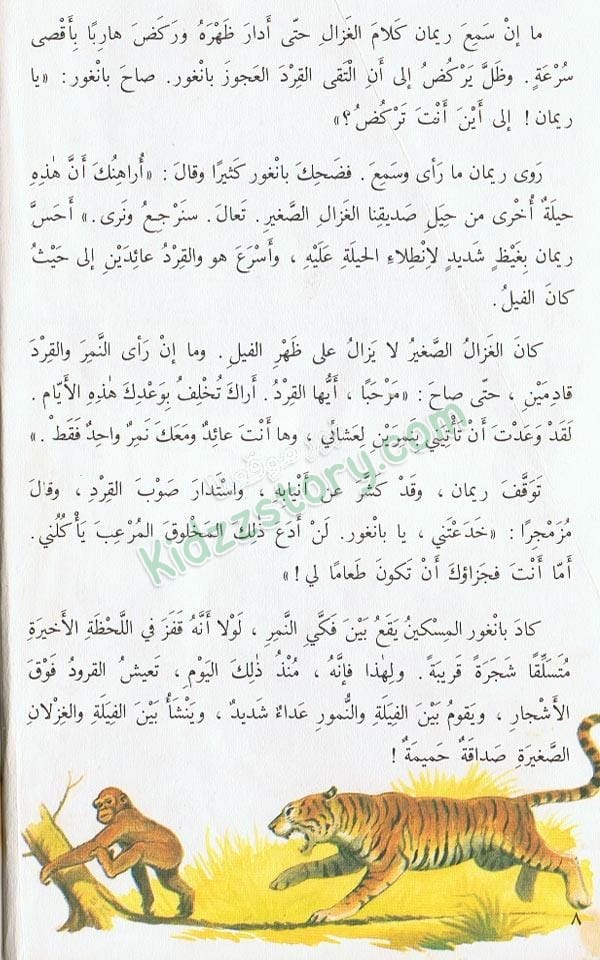 ما إنْ سَمِعَ ريمان كَلامَ الغَزالِ حتّى أَدارَ ظَهْرَهُ ورَكَضَ هارِبًا بِأَقْصى
سُرْعَةٍ . وظَلَّ يَرْكُضُ إلى أَنِ الْتَقى القِرْدَ العَجوزَ بانْغور. صاحَ بانْغور: «يا
ريمان! إلى أَيْنَ أَنْتَ تَرْكُضُ؟»
رَوى ريمان ما رَأى وسَمِعَ . فضَحِكَ بانْغور كَثيرًا وقالَ : «أُراهِنُكَ أَنَّ هٰذِهِ
حيلَةٌ أُخْرى من حِيَلِ صَديقِنا الغَزالِ الصَّغيرِ. تَعالَ. سنَرْجِعُ ونَرى.» أَحَسَّ
ريمان بِغَيْظٍ شَديدٍ لاِنْطِلاءِ الحيلَةِ عَلَيْهِ ، وأَسْرَعَ هو والقِرْدُ عائِدَيْنِ إلى حَيْثُ
كانَ الفيلُ.
كانَ الغَزالُ الصَّغيرُ لا يَزالُ على ظَهْرِ الفيلِ. وما إنْ رَأى النَّمِرَ والقِرْدَ
قادِمَيْنِ ، حتّى صاحَ : «مَرْحَبًا ، أَيُّها القِرْدُ. أَراكَ تُخْلِفُ بِوَعْدِكَ هٰذِهِ الأَيّام .
لَقَدْ وَعَدْتَ أَنْ تَأْتِيَني بِنَمِرَيْنِ لِعَشائي ، وها أَنْتَ عائِدٌ ومَعَكَ نَمِرٌ واحِدٌ فَقَطْ .»
تَوَقَّفَ ريمان ، وقَدْ كَشَّرَ عن أَنْيابِهِ ، واسْتَدارَ صَوْبَ القِرْدِ ، وقالَ
مُزَمْجِرًا : «خَدَعْتَني ، يا بانْغور. لَنْ أَدَعَ ذٰلِكَ المَخْلوقَ المُرْعِبَ يَأْكُلُني.
أَمّا أَنْتَ فجَزاؤكَ أَنْ تَكونَ طَعامًا لي!»
كادَ بانْغور المِسْكينُ يَقَعُ بَيْنَ فَكَّيِ النَّمِرِ ، لَوْلا أَنَّهُ قَفَزَ في اللَّحْظَةِ الأَخيرَةِ
مُتَسَلِّقًا شَجَرَةً قَريبَةً . ولِهٰذا فإنَّهُ ، مُنْذُ ذٰلِكَ اليَوْمِ ، تَعيشُ القُرودُ فَوْقَ
الأَشْجارِ ، ويَقومُ بَيْنَ الفِيَلَةِ والنُّمورِ عَداءٌ شَديدٌ ، ويَنْشَأُ بَيْنَ الفِيَلَةِ والغِزْلانِ
الصَّغيرَةِ صَداقَةٌ حَميمَةٌ !
Kidzzstory.com
٨